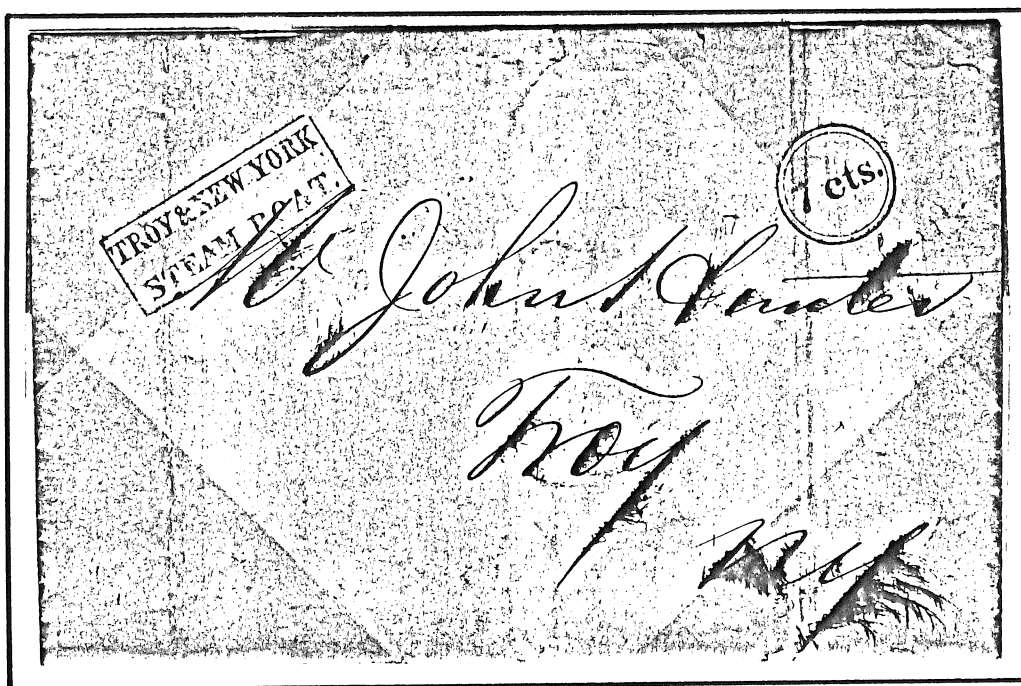 TROY & NEW YORK
STEAM BOAT.
7 cts.
Mr John
Troy
NY